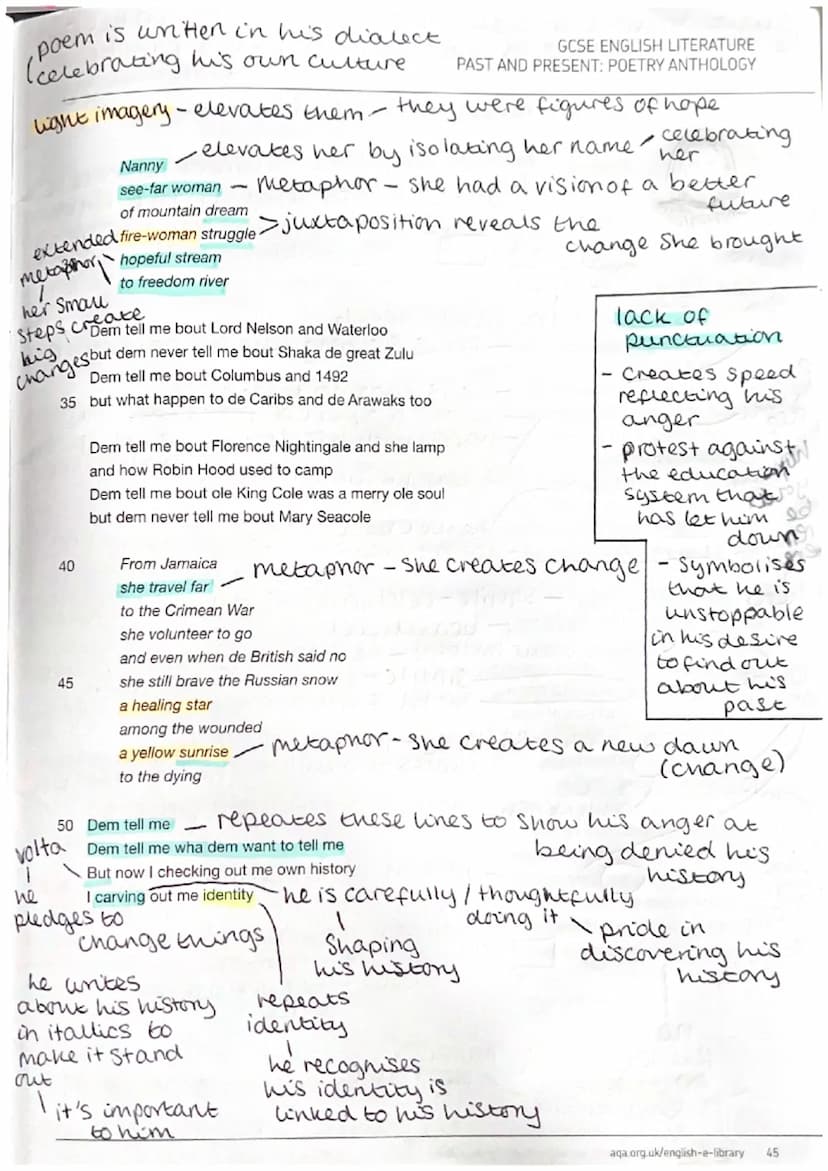 poem is written in his dialect
(celebrating his own culture
GCSE ENGLISH LITERATURE
PAST AND PRESENT: POETRY ANTHOLOGY
light imagery - elevates them - they were figures of hope
Nanny
elevates her by isolating her name - celebrating
her
see-far woman
- metaphor - she had a vision of a better
future
of mountain dream
fire-woman struggle
> juxtaposition reveals the
change she brought
hopeful stream
to freedom river
extended
metaphor
her small
steps create
big
changes
Dem tell me bout Lord Nelson and Waterloo
but dem never tell me bout Shaka de great Zulu
Dem tell me bout Columbus and 1492
35 but what happen to de Caribs and de Arawaks too
Dem tell me bout Florence Nightingale and she lamp
and how Robin Hood used to camp
Dem tell me bout ole King Cole was a merry ole soul
but dem never tell me bout Mary Seacole
lack of
punctuation
- creates speed
reflecting his
anger
- protest against
the education
system that
has let him
down
- symbolises
that he is
unstoppable
in his desire
to find out
about his
past
40 From Jamaica
she travel far
- metaphor - she creates change
to the Crimean War
she volunteer to go
and even when de British said no
45 she still brave the Russian snow
a healing star
among the wounded
a yellow sunrise
- metaphor - she creates a new dawn
(change)
to the dying
50 Dem tell me
- repeates these lines to show his anger at
being denied his
history
Dem tell me wha dem want to tell me
But now I checking out me own history
I carving out me identity
volta
he
pledges to
change things
he is carefully / thoughtfully
doing it
shaping
his history
pride in
discovering his
history
he writes
about his history
in itallics to
make it stand
out
it's important
to him
repeats
identity
he recognises
his identity is
linked to his history
aqa.org.uk/english-e-library 45